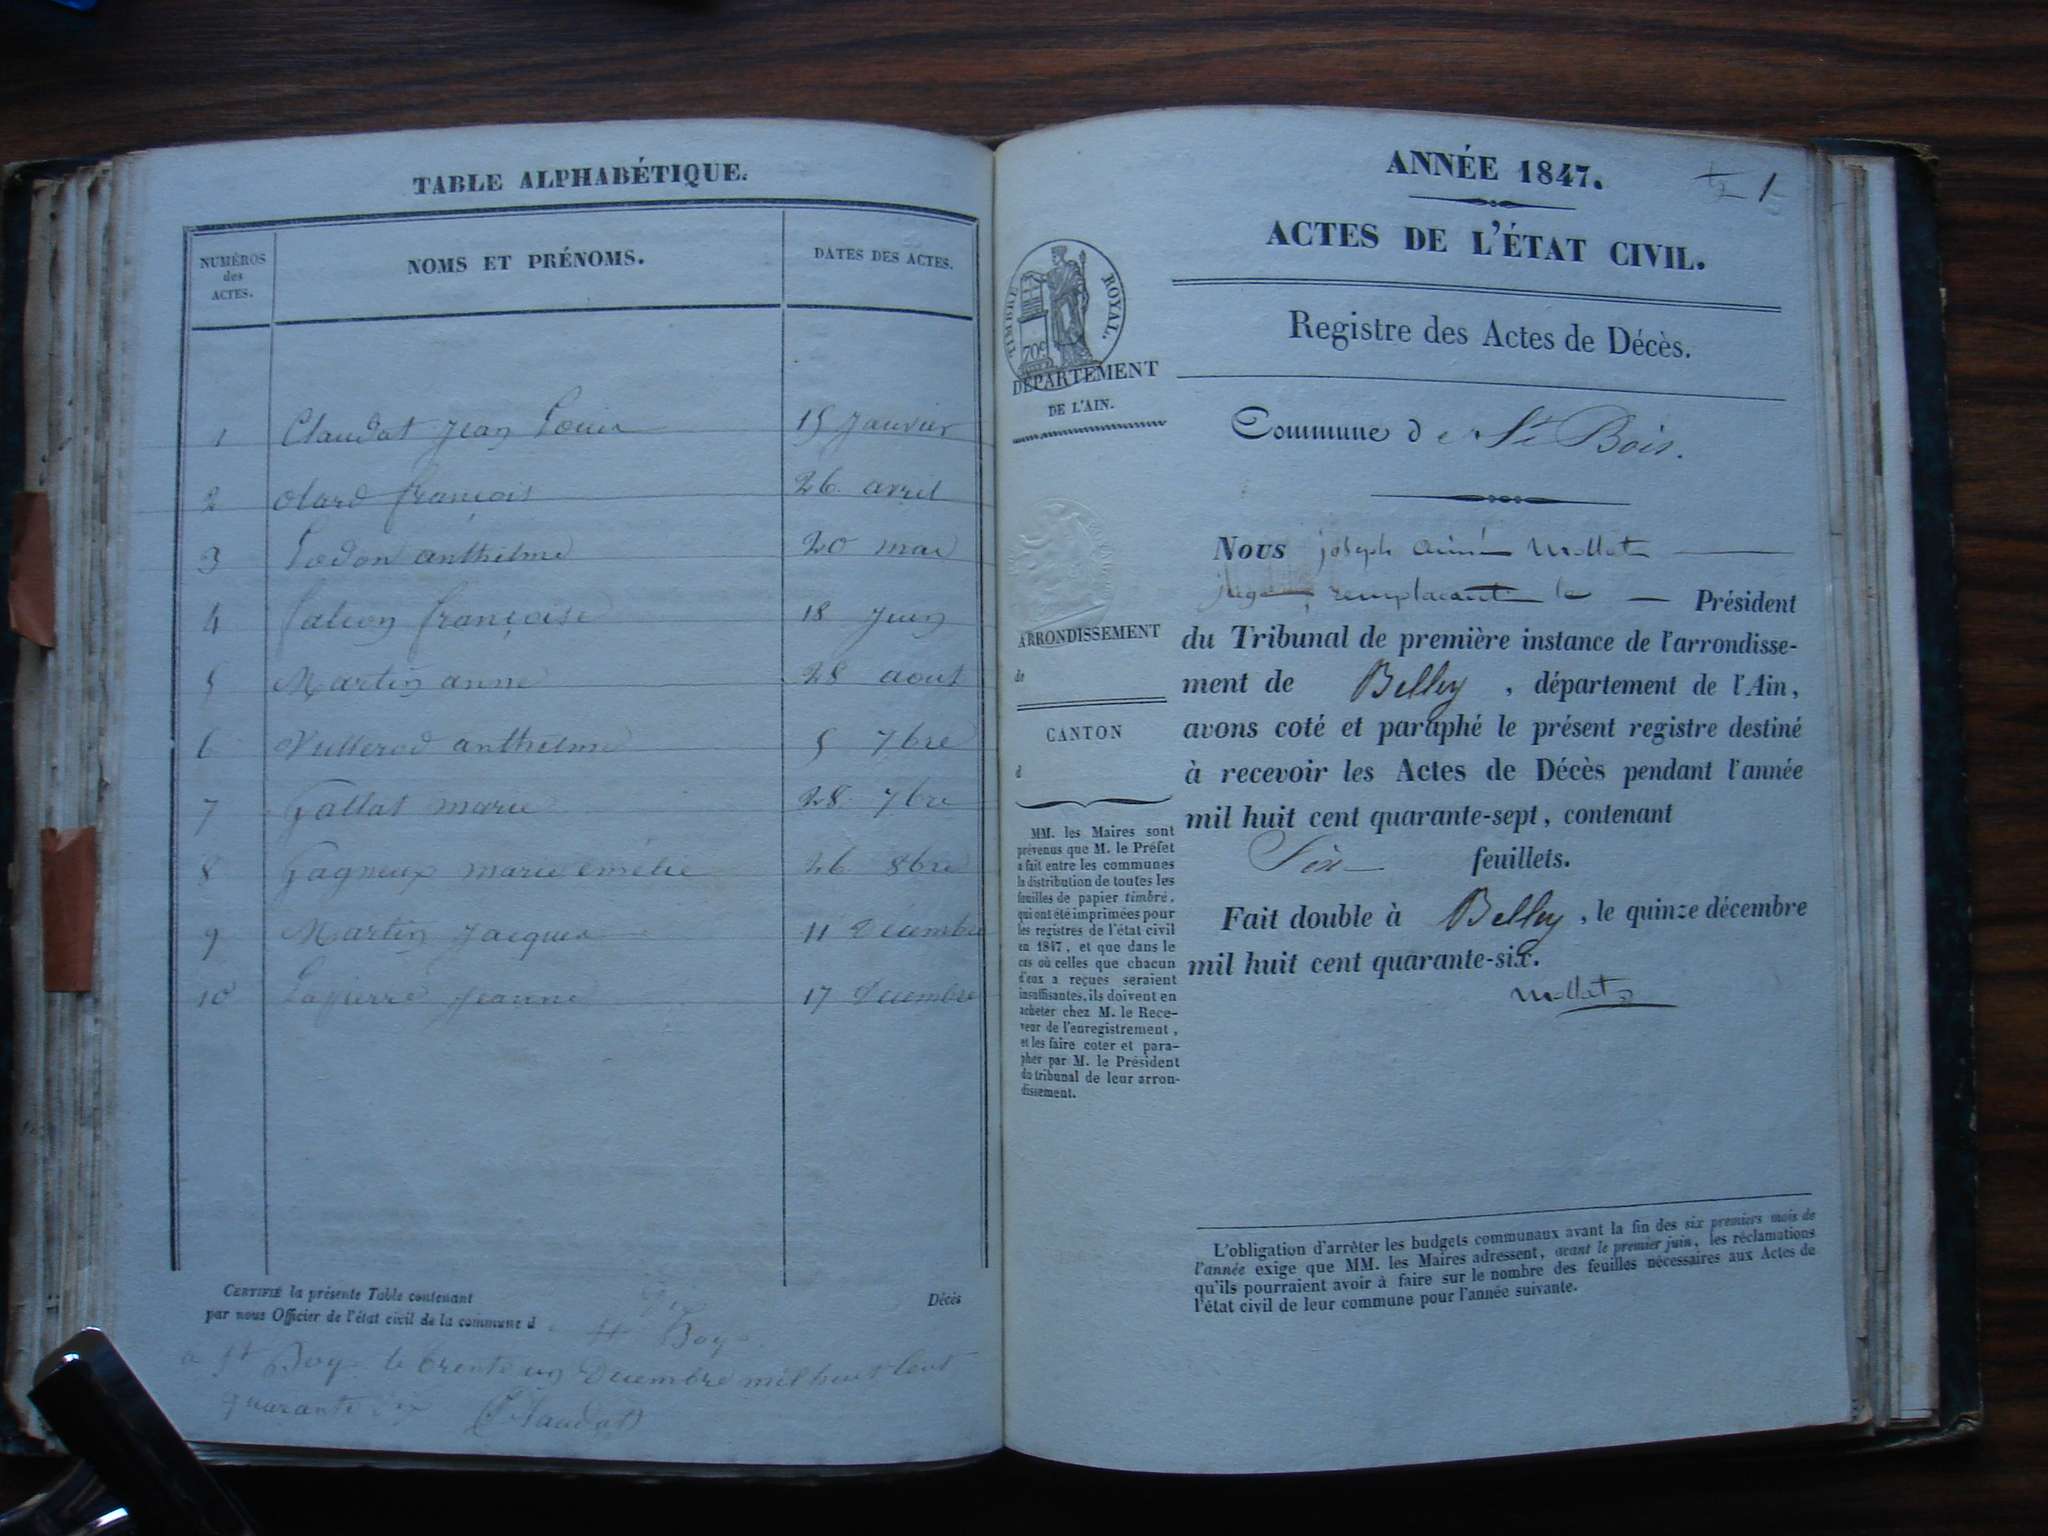 TABLE ALPHABÉTIQUE.
NUMÉROS des ACTES.
NOMS ET PRÉNOMS.
DATES DES ACTES.
1 Claudat Jean Louis 15 Janvier
2 olard françois 26 avril
3 Lodon anthelme 20 mai
4 falcon françoise 18 Juin
5 Martin anne 28 aout
6 Vullerod anthelme 5 7bre
7 Gallat marie 28 7bre
8 Gagneux marie emélie 26 8bre
9 Martin Jacques 11 Décembre
10 Lapierre Jeanne 17 Décembre
CERTIFIÉ la présente Table contenant Dix Décès
par nous Officier de l'état civil de la commune d e St Boys
a St Boys le trente un Décembre mil huit cent
quarante six Claudat
ANNÉE 1847.
1
ACTES DE L'ÉTAT CIVIL.
Registre des Actes de Décès.
TIMBRE ROYAL.
70c
DÉPARTEMENT
DE L'AIN.
ARRONDISSEMENT
de
CANTON
d
MM. les Maires sont
prévenus que M. le Préfet
a fait entre les communes
la distribution de toutes les
feuilles de papier timbré,
qui ont été imprimées pour
les registres de l'état civil
en 1847, et que dans le
cas où celles que chacun
d'eux a reçues seraient
insuffisantes, ils doivent en
acheter chez M. le Rece-
veur de l'enregistrement,
et les faire coter et para-
pher par M. le Président
du tribunal de leur arron-
dissement.
Commune d e St Bois.
Nous joseph aimé Mollet
juge remplacant le Président
du Tribunal de première instance de l'arrondisse-
ment de Belley, département de l'Ain,
avons coté et paraphé le présent registre destiné
à recevoir les Actes de Décès pendant l'année
mil huit cent quarante-sept, contenant
Six feuillets.
Fait double à Belley, le quinze décembre
mil huit cent quarante-six.
Mollet
L'obligation d'arrêter les budgets communaux avant la fin des six premiers mois de
l'année exige que MM. les Maires adressent, avant le premier juin, les réclamations
qu'ils pourraient avoir à faire sur le nombre des feuilles nécessaires aux Actes de
l'état civil de leur commune pour l'année suivante.